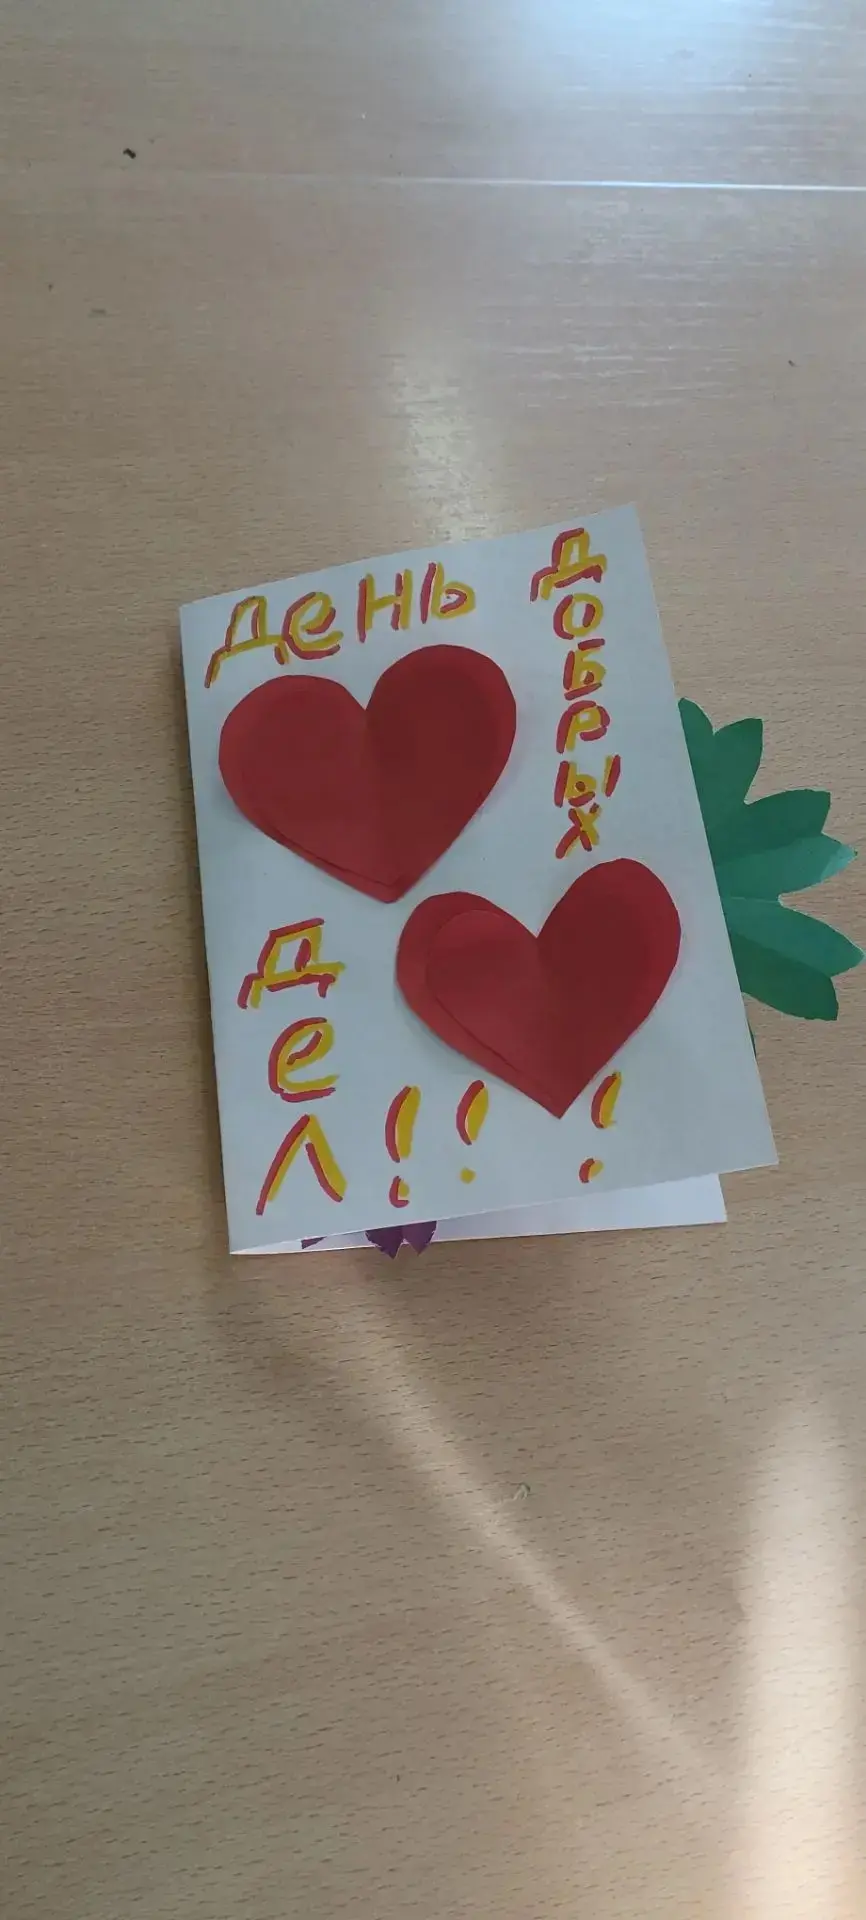 День
Добрых
Дел!!!